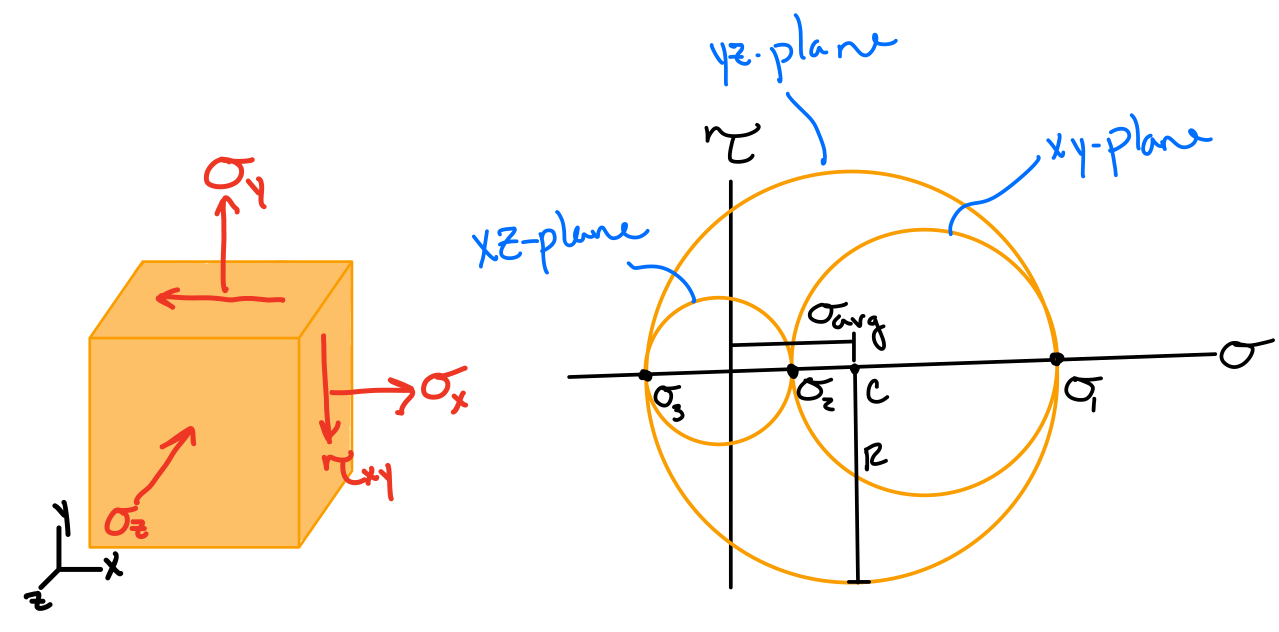 σy
σx
τxy
σz
y
x
z
yz-plane
τ
xy-plane
xz-plane
σavg
σ
σ3
σ2
C
σ1
R